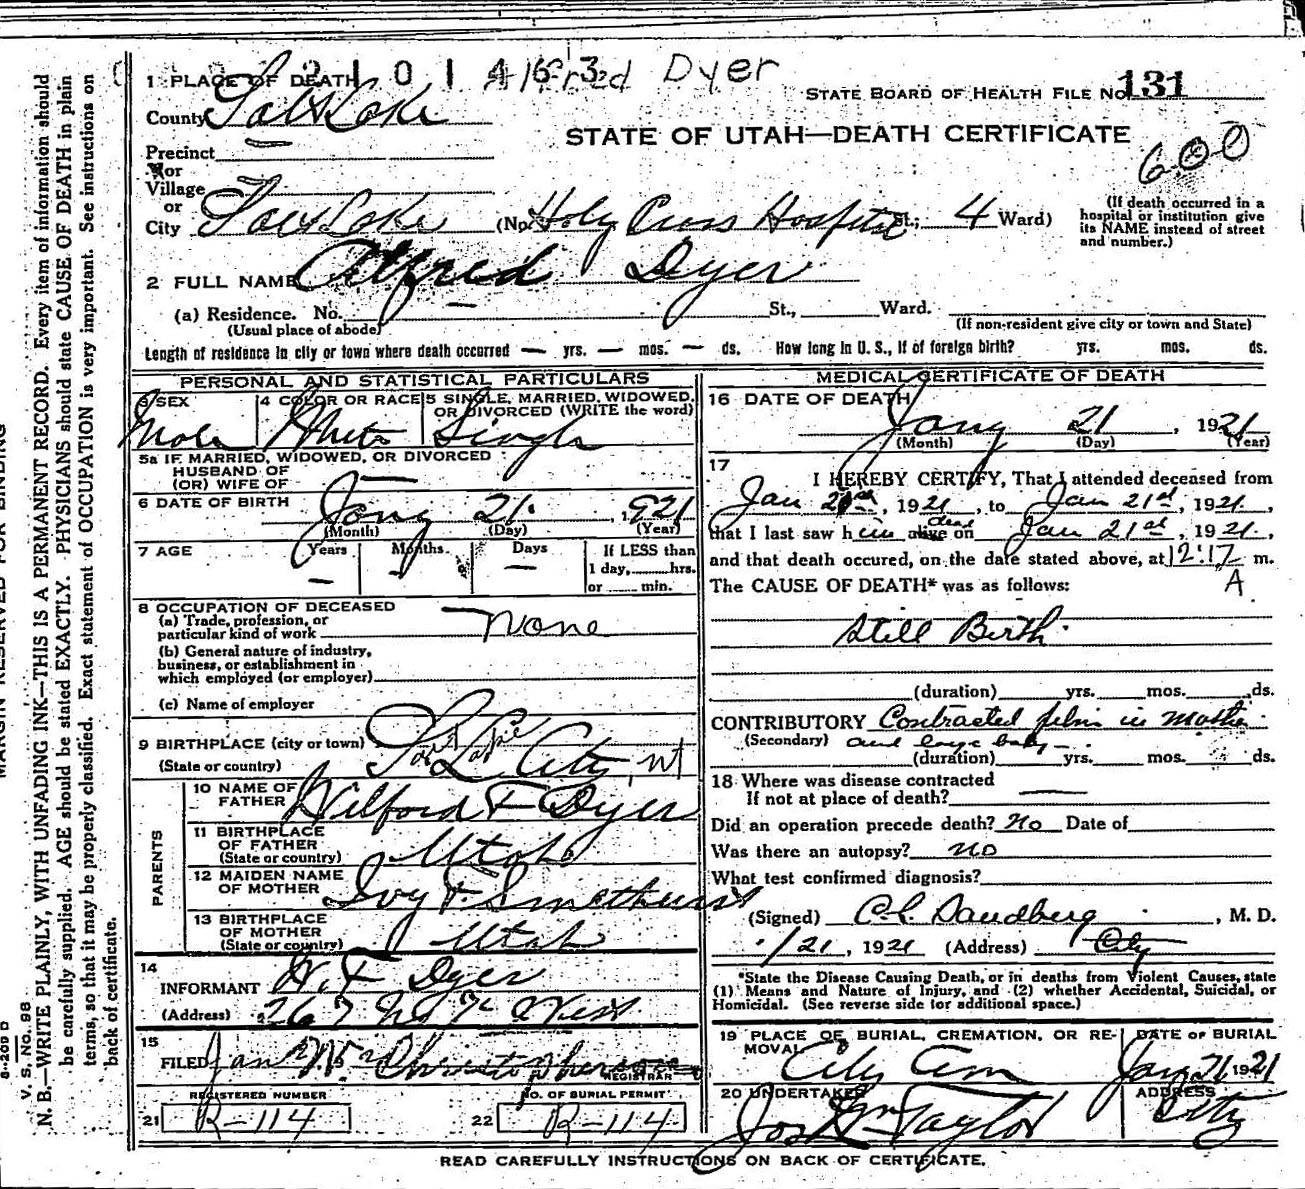 2 1 0 1 4 6 3 Alfred Dyer
1 PLACE OF DEATH
STATE BOARD OF HEALTH FILE No. 131
County Salt Lake
STATE OF UTAH—DEATH CERTIFICATE
600
Precinct
or
Village
or
City Salt Lake (No. Holy Cross Hospital St.; 4 Ward)
(If death occurred in a
hospital or institution give
its NAME instead of street
and number.)
2 FULL NAME Alfred Dyer
(a) Residence. No. — St., Ward.
(Usual place of abode)
(If non-resident give city or town and State)
Length of residence in city or town where death occurred — yrs. — mos. — ds. How long in U. S., if of foreign birth? yrs. mos. ds.
PERSONAL AND STATISTICAL PARTICULARS
3 SEX
Male
4 COLOR OR RACE
White
5 SINGLE, MARRIED, WIDOWED,
OR DIVORCED (WRITE the word)
Single
5a IF MARRIED, WIDOWED, OR DIVORCED
HUSBAND OF
(OR) WIFE OF —
6 DATE OF BIRTH Jany 21. 1921
(Month) (Day) (Year)
7 AGE Years Months Days If LESS than
— — — 1 day, hrs.
or min.
8 OCCUPATION OF DECEASED
(a) Trade, profession, or
particular kind of work None
(b) General nature of industry,
business, or establishment in
which employed (or employer)
(c) Name of employer
9 BIRTHPLACE (city or town)
(State or country) Salt Lake City, Ut
PARENTS
10 NAME OF
FATHER Wilford F Dyer
11 BIRTHPLACE
OF FATHER
(State or country) Utah
12 MAIDEN NAME
OF MOTHER Ivy F. Smethurst
13 BIRTHPLACE
OF MOTHER
(State or country) Utah
14
INFORMANT W. F Dyer
(Address) 267 No 7th West
15
FILED Jan Christopherson
REGISTRAR
REGISTERED NUMBER
21 R-114
NO. OF BURIAL PERMIT
22 R-114
MEDICAL CERTIFICATE OF DEATH
16 DATE OF DEATH
Jany 21, 1921
(Month) (Day) (Year)
17
I HEREBY CERTIFY, That I attended deceased from
Jan 21st, 1921, to Jan 21st, 1921,
that I last saw him alive dead on Jan 21st, 1921.,
and that death occured, on the date stated above, at 12:17 m.
The CAUSE OF DEATH* was as follows: A
Still Birth.
(duration) yrs. mos. ds.
CONTRIBUTORY Contracted pelvis in mother
(Secondary) and large baby—
(duration) yrs. mos. ds.
18 Where was disease contracted
If not at place of death? —
Did an operation precede death? No Date of
Was there an autopsy? no
What test confirmed diagnosis?
(Signed) C. L. Sandberg, M. D.
1/21, 1921 (Address) City
*State the Disease Causing Death, or in deaths from Violent Causes, state
(1) Means and Nature of Injury, and (2) whether Accidental, Suicidal, or
Homicidal. (See reverse side for additional space.)
19 PLACE OF BURIAL, CREMATION, OR RE-
MOVAL City Cem
DATE OF BURIAL
Jany 21 1921
20 UNDERTAKER
Jos Wm Taylor
ADDRESS
City
READ CAREFULLY INSTRUCTIONS ON BACK OF CERTIFICATE.
MARGIN RESERVED FOR BINDING
V. S. No. 88
N. B.—WRITE PLAINLY, WITH UNFADING INK—THIS IS A PERMANENT RECORD. Every item of information should
be carefully supplied. AGE should be stated EXACTLY. PHYSICIANS should state CAUSE OF DEATH in plain
terms, so that it may be properly classified. Exact statement of OCCUPATION is very important. See instructions on
back of certificate.